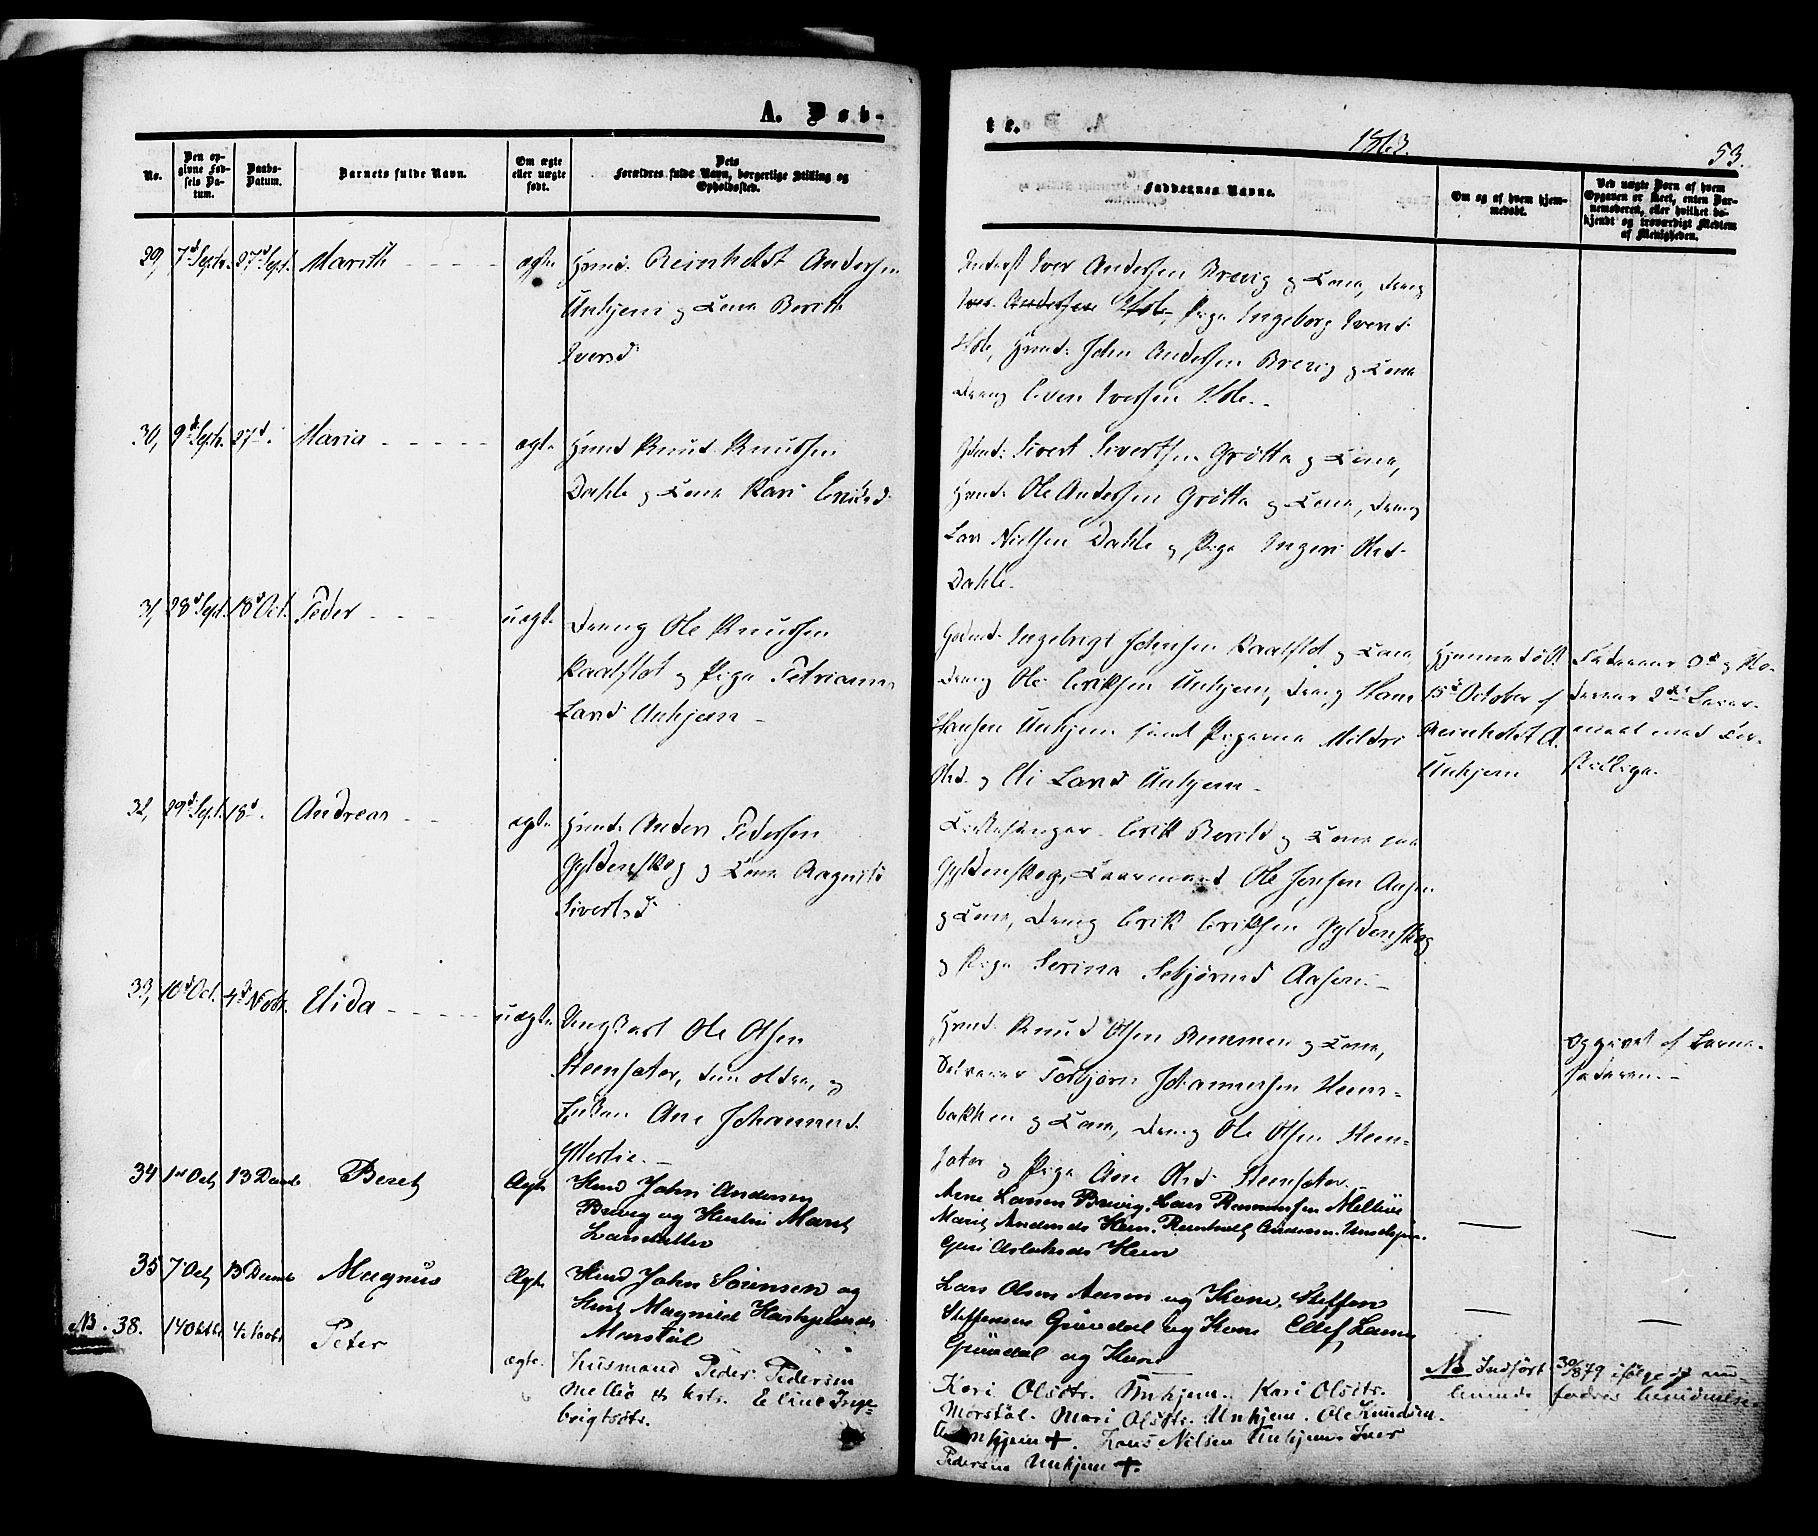 A. Døb-
te.
1863.
53.
No.
Den op-
givne Fød-
sels Da-
tum.
Daabs-
Datum.
Barnets fulde Navn.
Om ægte
eller uægte
født.
Dets
Forældres fulde Navn, borgerlige Stilling og
Opholdssted.
Faddernes Navne.
Om og af hvem hjem-
medøbt.
Ved uægte Børn af hvem
Opgaven er skeet, enten Bar-
nemoderen, eller hvilket be-
kjendt og troværdigt Medlem
af Menigheden.
29, 7d Septr. 27d Sept. Marith ægte
Gmd. Reinholdt Andersen
Unhjem og Kone Berith
Iversd
Iver Andersen Brevig og Kone, Dreng
Iver Andersen Hole, Pige Ingeborg Iversd
Hole, Gmd: John Andersen Brevig og Kone
Dreng Iversen Hole.
30, 9d Septr. 27d. Maria ægte
Gmd Knud Knudsen
Dahle og Kone Kari
Gmd: Sivert Sivertsen Grøtta og Kone,
Gmd: Ole Andersen Grøtta og Kone, Dreng
Lars Nielsen Dahle og Pige Ingeri Olsd
Dahle.
31, 28d Sept. 18d Oct. Peder uægte
Dreng Ole Knudsen
Kaalflot og Pige Petriane
Larsd Unhjem
Gmd. Ingebrigt Johnsen Kaalflot og Kone,
Dreng Ole Eriksen Unhjem, Dreng Hans
Hansen Unhjem samt Pigerne Mildri
Olsd. og Larsd Unhjem
Hjemmedøbt
15d October af
Reinholdt A.
Unhjem
Faderens 0d og Mo-
derens 2det Leier-
maal med For-
skillige.
32, 29d Sept. 18d. Andreas ægte
Gmd. Anders Pedersen
Gyldenskog og Kone
Sivertsd
Kirkesanger Erik Berild og Kone paa
Gyldenskog, Ole Jensen Aasen
og Kone, Dreng Erik Eriksen Gyldenskog
og Pige Serina Aasen.
33, 10d Oct. 4d Novbr. uægte
Ungkarl Ole Olsen
Steensæter, den ældre, og
Enken Ane Johannesd.
Gmd. Knud Olsen Remmen og Kone,
Torbjørn Johannessen Heens-
bakken og Kone, Dreng Ole Olsen Steen-
sæter og Pige Ane Olsd Steensæter.
Opgivet af Barne-
faderen.
34 1st Oct 13 Decmb Beret Ægte
Gmd John Andersen
Brevig og Hustru Marit
Larsdatter
Arne Larsen Brevig, Lars Rasmussen Melbøe
Marit Andersds Hein. Reinholt Andersen Unhjem.
Guri Hein
35 7 Oct 13 Decmb Magnus Ægte
Gmd John Sørensen og
Hust Magnild
Morstøl
Lars Olsen Aasen og Kone, Steffen
Steffensen Grøvdal og Kone Ellef Larsen
Grøvdal og Kone
NB. 38. 14 Oktbr. Novbr Peter ægte.
Husmand Peder Pedersen
Melbø & kst. Eline Inge-
brigtsdtr.
Kari Olsdtr. Unhjem. Kari Olsdtr.
Morstøl. Mari Olsdtr. Unhjem. Ole Knudsen
Unhjem +. Hans Nilsen Unhjem. Iver
Pedersen Unhjem +.
NB Indført 30/879 ifølge